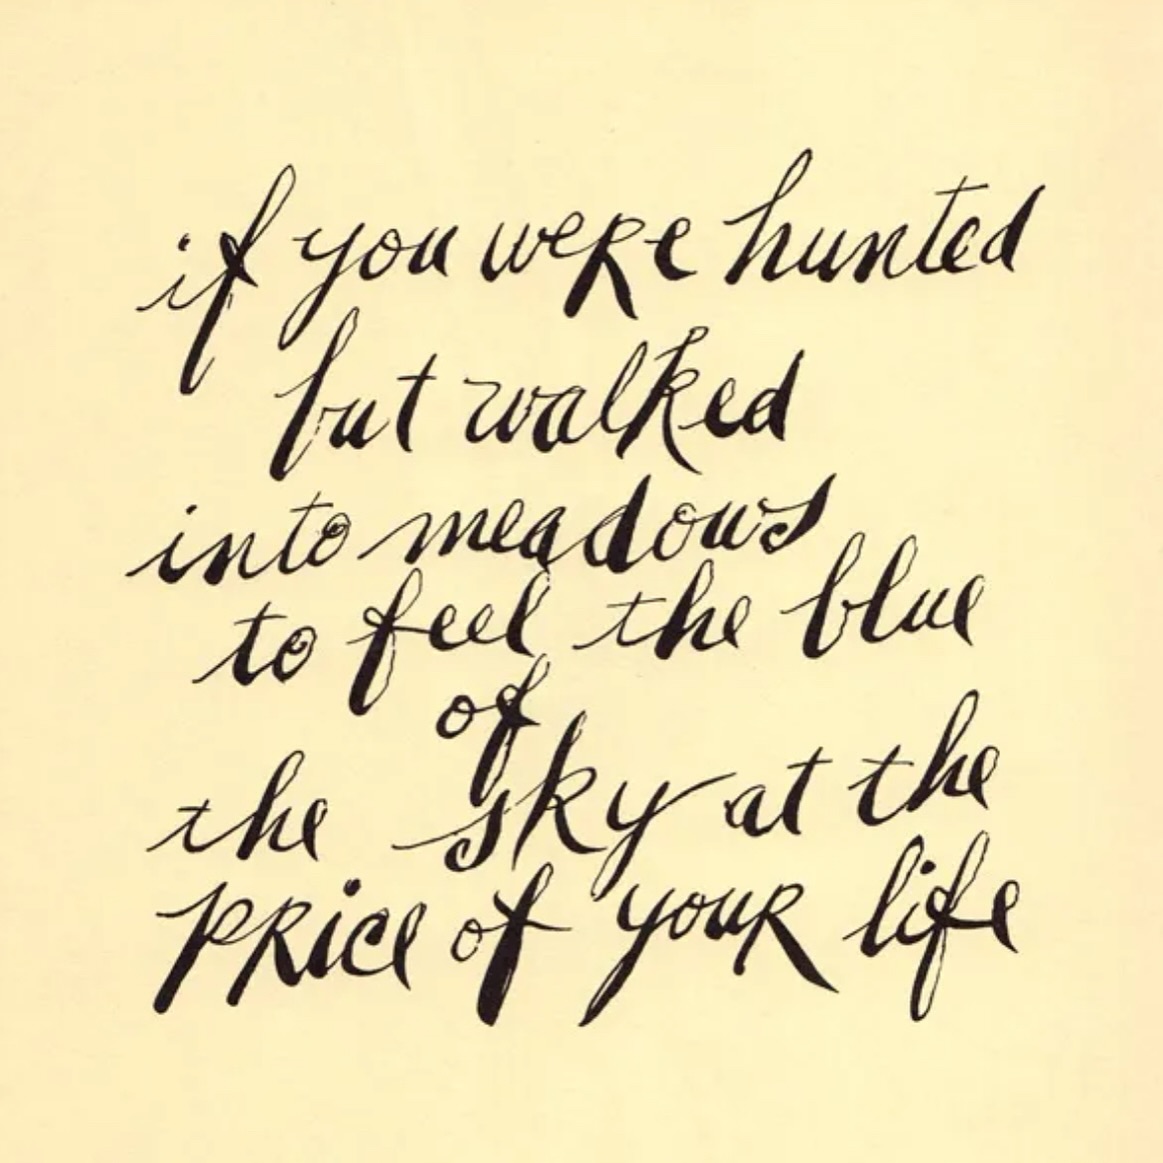 if you were hunted
but walked
into meadows
to feel the blue
of
the sky at the
price of your life